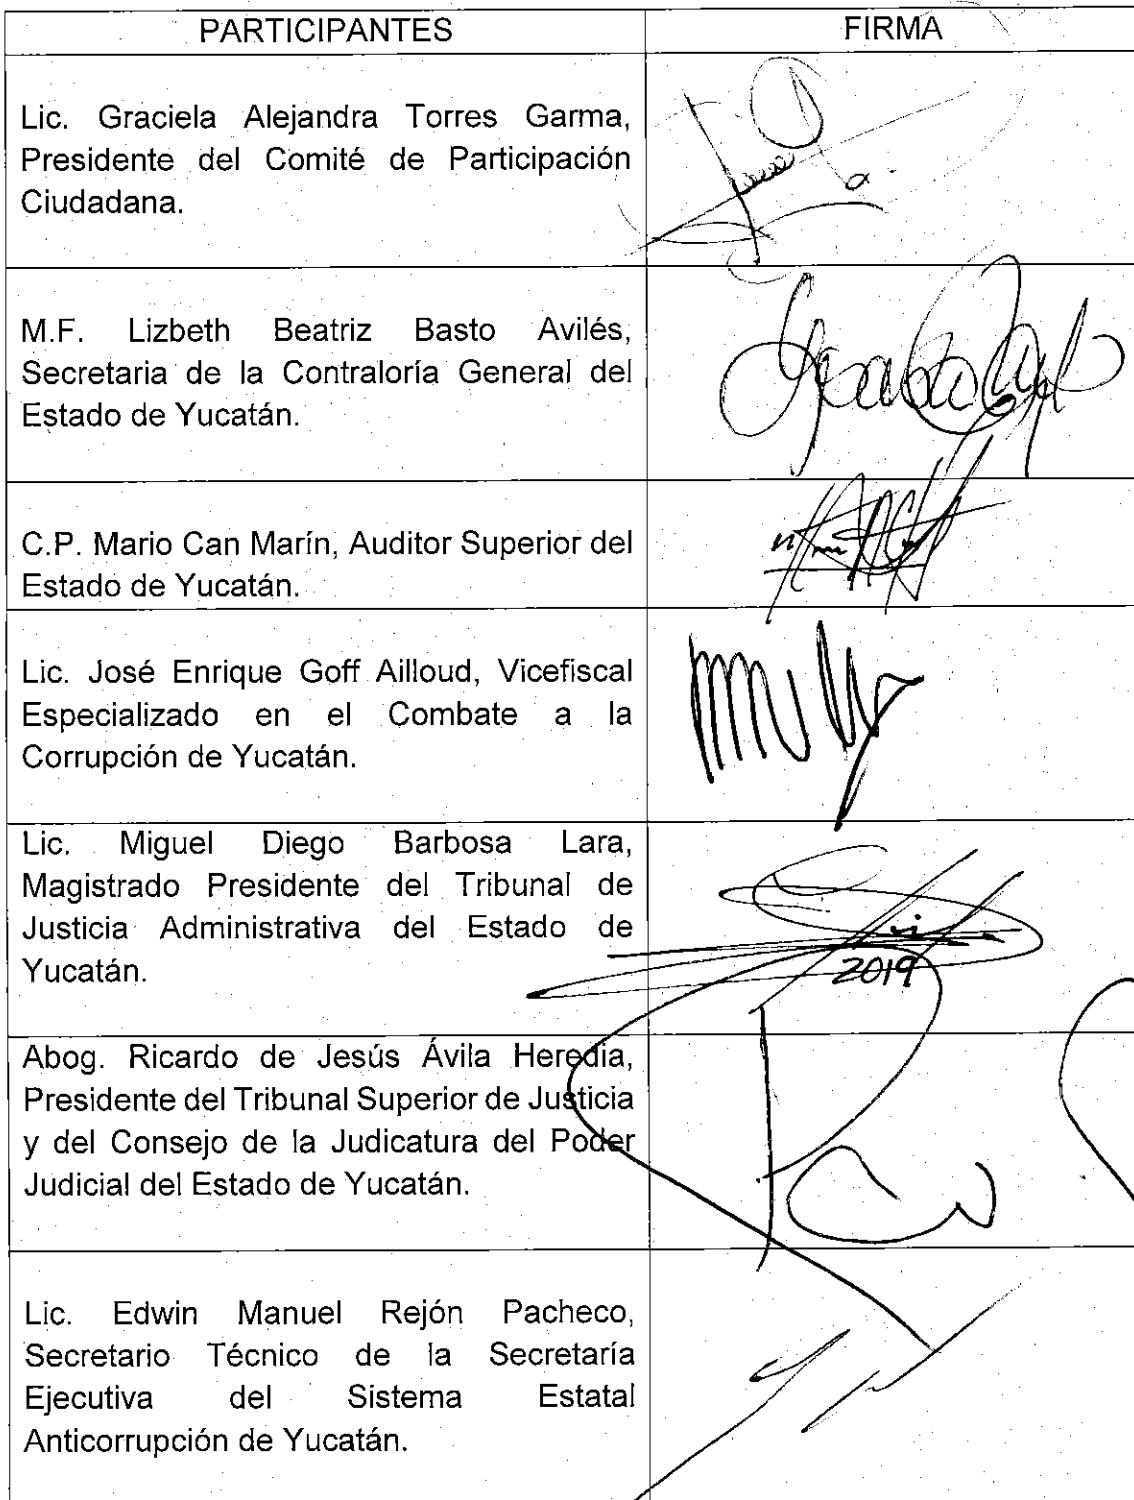 PARTICIPANTES FIRMA
Lic. Graciela Alejandra Torres Garma,
Presidente del Comité de Participación
Ciudadana.
M.F. Lizbeth Beatriz Basto Avilés,
Secretaria de la Contraloría General del
Estado de Yucatán.
C.P. Mario Can Marín, Auditor Superior del
Estado de Yucatán.
Lic. José Enrique Goff Ailloud, Vicefiscal
Especializado en el Combate a la
Corrupción de Yucatán.
Lic. Miguel Diego Barbosa Lara,
Magistrado Presidente del Tribunal de
Justicia Administrativa del Estado de
Yucatán.
2019
Abog. Ricardo de Jesús Ávila Heredia,
Presidente del Tribunal Superior de Justicia
y del Consejo de la Judicatura del Poder
Judicial del Estado de Yucatán.
Lic. Edwin Manuel Rejón Pacheco,
Secretario Técnico de la Secretaría
Ejecutiva del Sistema Estatal
Anticorrupción de Yucatán.